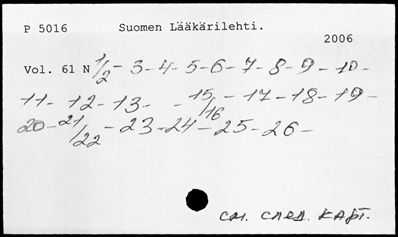 P 5016 Suomen Lääkärilehti.
2006
Vol. 61 N 1/2 - 3 - 4 - 5 - 6 - 7 - 8 - 9 - 10 -
11 - 12 - 13 - - 15/16 - 17 - 18 - 19 -
20 - 21/22 - 23 - 24 - 25 - 26 -
см. след. карт.